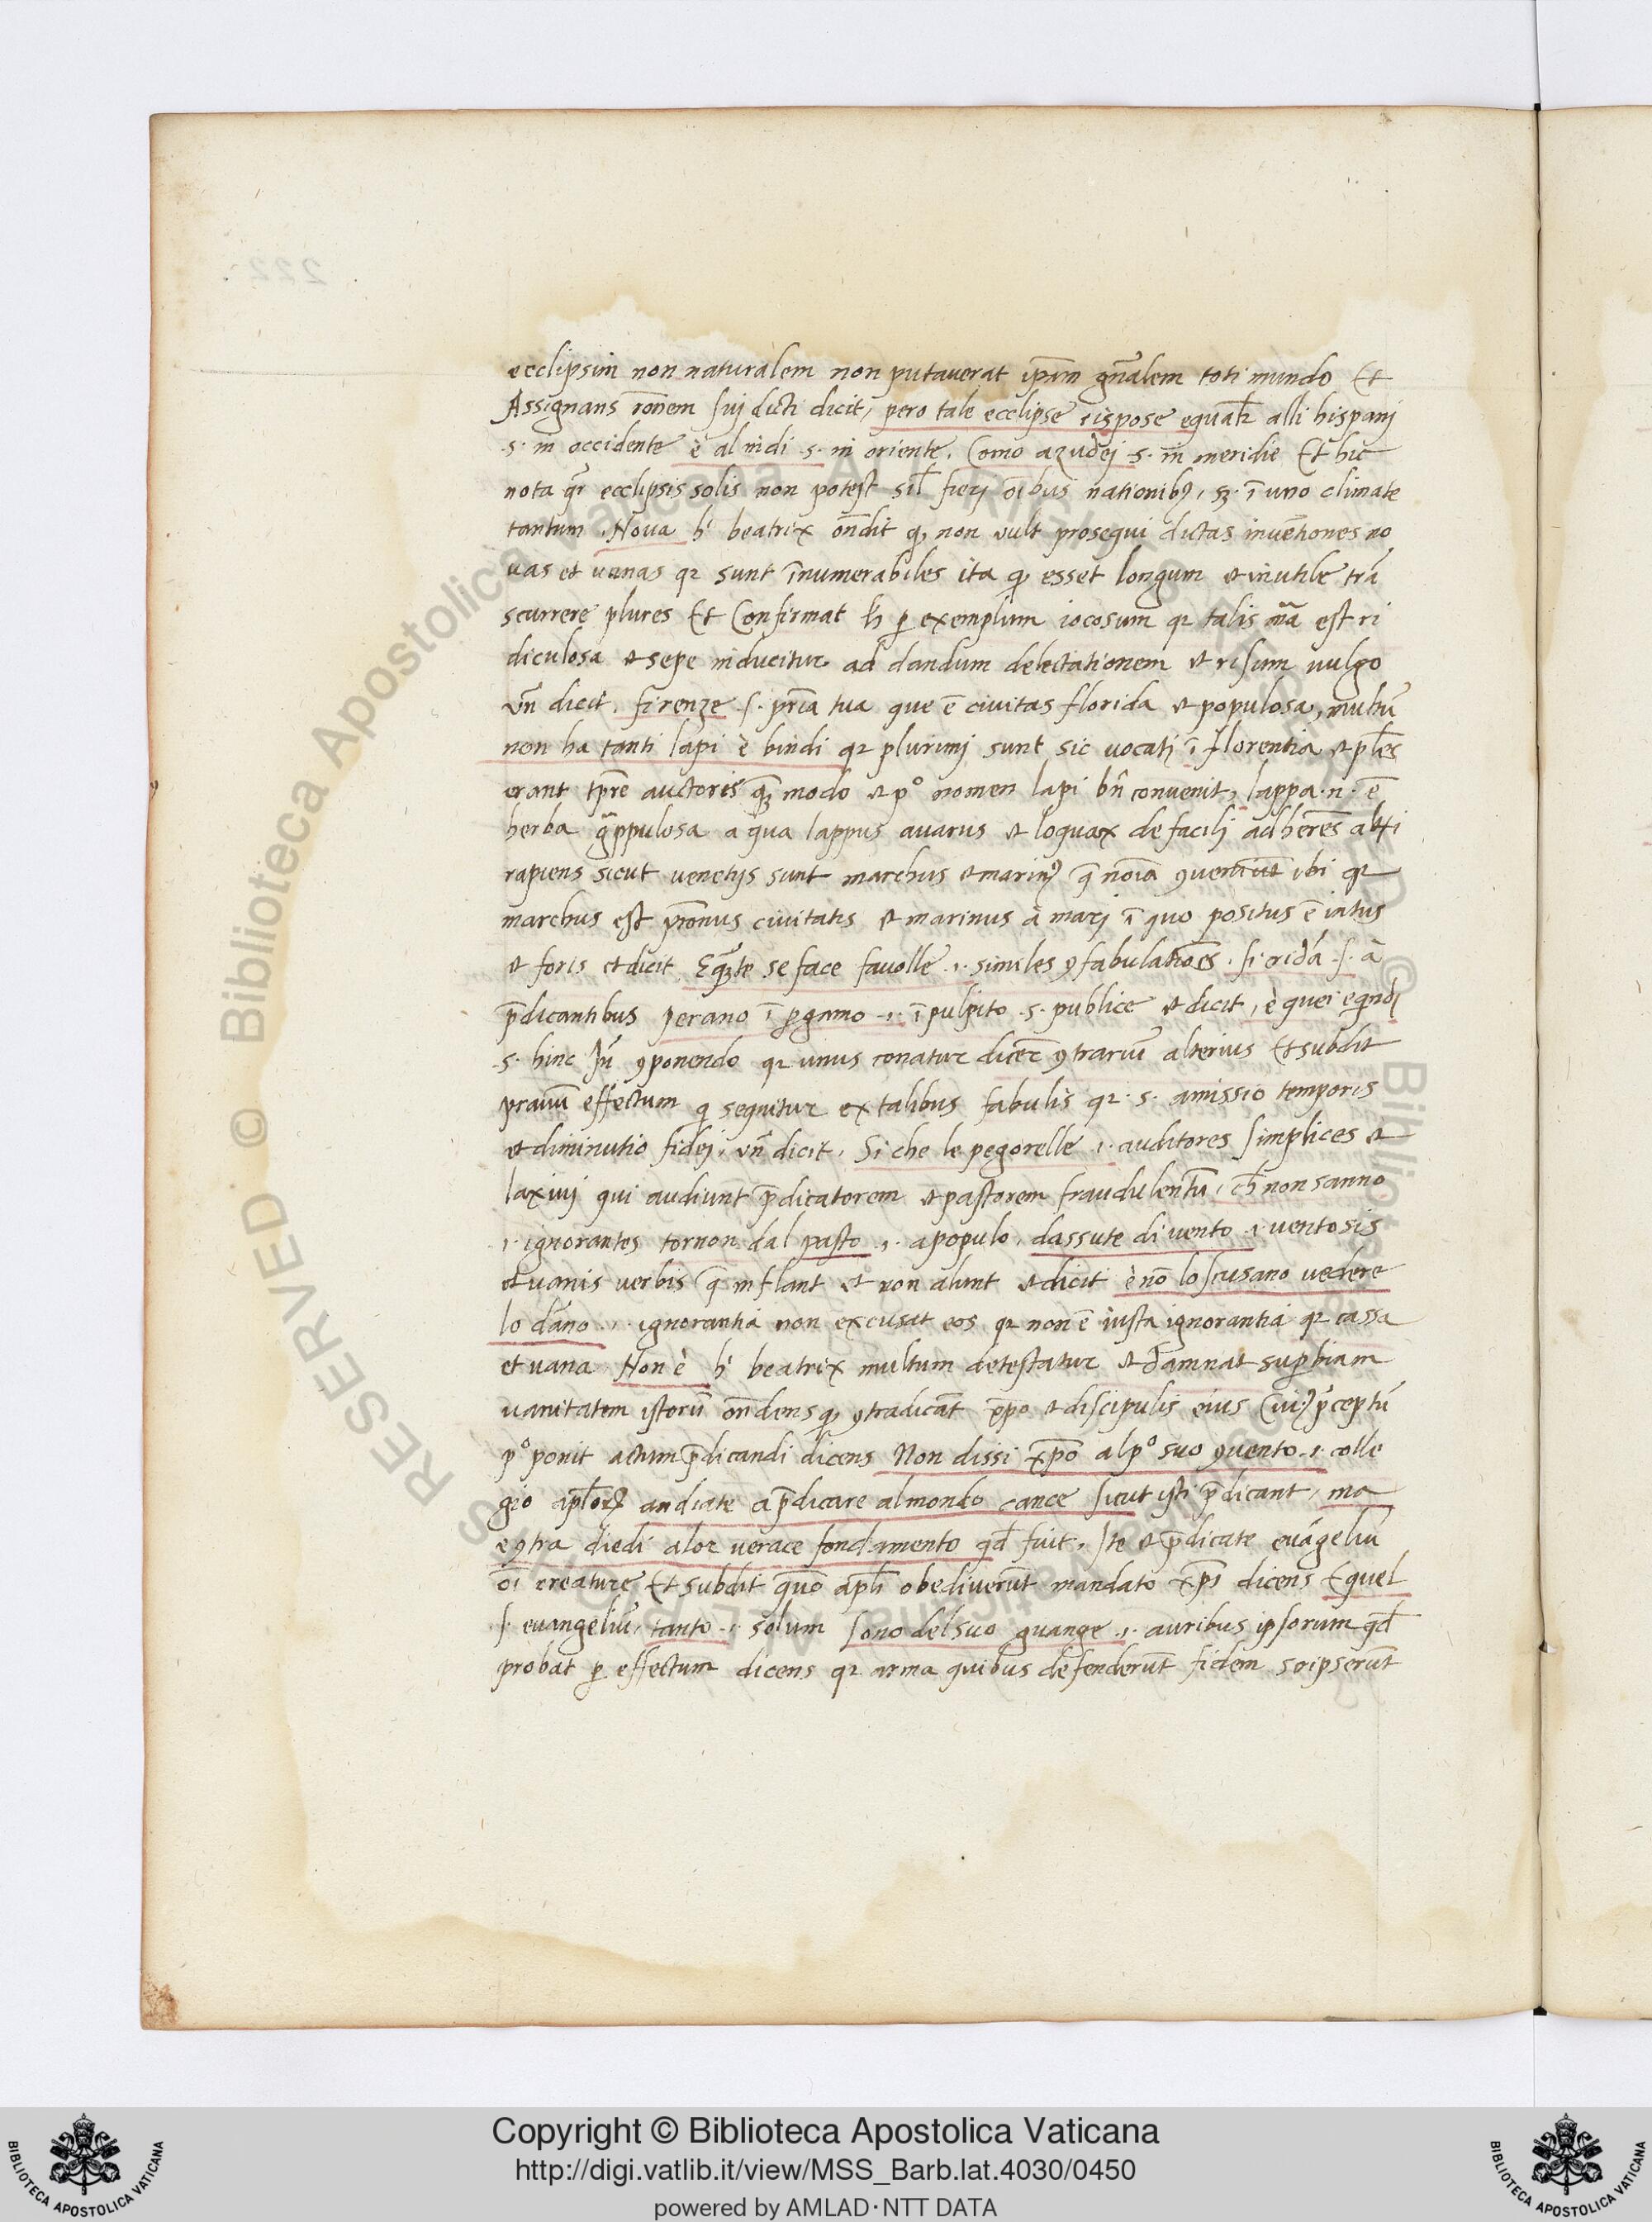 ecclipsim non naturalem non putaverat ip̃am gñalem toti mundo Et
Assignans rõnem sui dicti dicit, pero tale ecclipse rispose equal̃r alli hispani
.s. in occidente è al indi .s. in oriente. Como azudei .s. in meridie Et hic
nota qr ecclipsis solis non potest sil̃ fieri oĩbus nationibꝫ, sꝫ. ĩ uno climate
tantum. Nova hͥ beatrix oñdit qꝫ non vult prosequi dictas inuẽtiones no
uas et uanas qꝛ sunt ĩnumerabiles ita qꝫ esset longum et inutile trã
scurrere plures Et Confirmat h̃ ꝑ exemplum iocosum qꝛ talis mã est ri
diculosa et sepe inducitur ad dandum delectationem et risum uulgo
vñ dicit. firenze .s. pr̃ia tua que ẽ civitas florida et populosa, multũ
non ha tanti lapi è bindi qꝛ plurimi sunt sic vocati ĩ florentia et pl̃es
erant tp̃re auctoris quã modo et p° nomen lapi bñ convenit, lappa .n. ẽ
herba grappulosa a qua lappus avarus et loquax de facili adherẽs alteri
rapiens sicut venetijs sunt marchus et marinꝰ q̃ noĩa ꝯueniũt ibi qꝛ
marchus est pr̃onus civitatis et marinus à mari ĩ quo positus ẽ intus
et foris et dicit Equãte se face favolle .i. similes ꝯfabulatioẽs. si cridá .s. à
p̃dicantibus perano ĩ ꝑgamo .i. ĩ pulpito .s. publice et dicit, è quei equindi
.s. hinc Iñ ꝯponendo qꝛ unus conatur dicer̃ ꝯtrariũ alterius Et subdit
prauũ effectum qͥ sequitur ex talibus fabulis qꝛ .s. amissio temporis
et diminutio fidei, vñ dicit. Si che le pegorelle .i. auditores simplices et
laxivi qui audiunt p̃dicatorem et pastorem fraudulentũ, ch̃ non sanno
.i. ignorantes tornon dal pasto .i. a populo. dassute di vento .i. ventosis
et vanis verbis q̃ inflant et non alunt et dicit è nõ lo scusano vedere
lo dãno .i. ignorantia non excusat eos qꝛ non ẽ iusta ignorantia qꝛ cassa
et vana. Non è hͥ beatrix multum detestatur et damnat supbiam
vanitatem istorũ oñdens qꝫ ꝯtradicãt xp̃o et discipulis eius Cuiꝰ p̃ceptũ
p° ponit actum p̃dicandi dicens Non dissi xp̃o al p° suo ꝯvento .i. colle
gio apl̃orꝫ andiate a p̃dicare al mondo cance sicut isti p̃dicant, ma
e ꝯtra diedi a lor verace fondamento qd̃ fuit. Ite et p̃dicate euãgeliũ
oĩ creature Et subdit quõ apl̃i obediverũt mandato xp̃i dicens E quel
.s. euangeliũ, tanto .i. solum sono del suo guange .i. auribus ipsorum qd̃
probat ꝑ effectum dicens qꝛ arma quibus defenderũt fidem scripserũt
222
Copyright © Biblioteca Apostolica Vaticana
http://digi.vatlib.it/view/MSS_Barb.lat.4030/0450
powered by AMLAD·NTT DATA
BIBLIOTECA APOSTOLICA VATICANA
BIBLIOTECA APOSTOLICA VATICANA